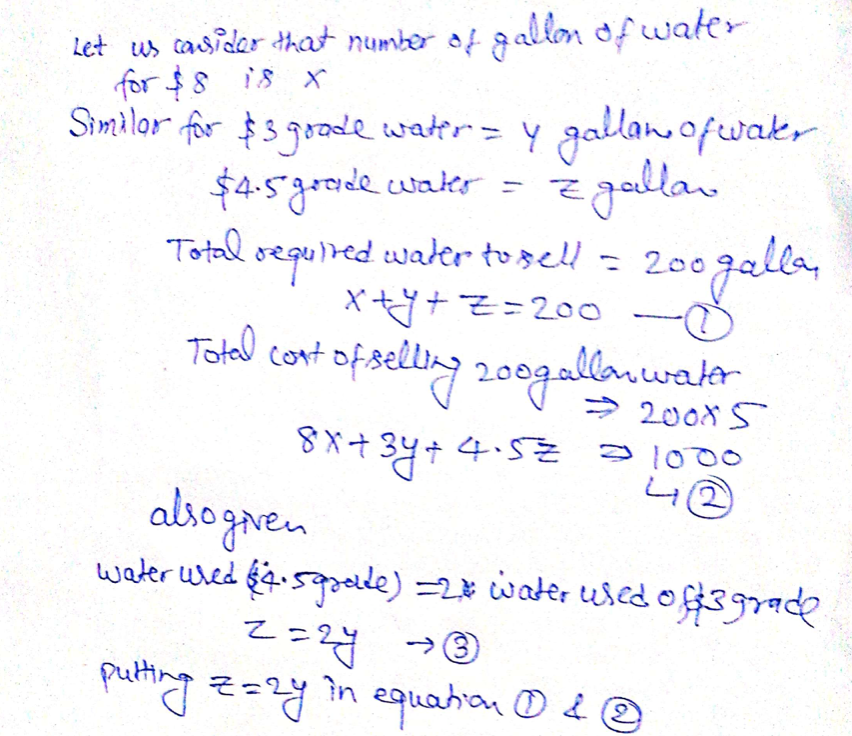 Let us consider that number of gallon of water
for $8 is x
Similar for $3 grade water = y gallan of water
$4.5 grade water = z gallan
Total required water to sell = 200 gallan
x+y+z=200 —①
Total cost of selling 200 gallan water
⇒ 200×5
8x+3y+4.5z ⇒ 1000
↳②
also given
water used ($4.5 grade) =2× water used of $3 grade
z=2y →③
putting z=2y in equation ① & ②